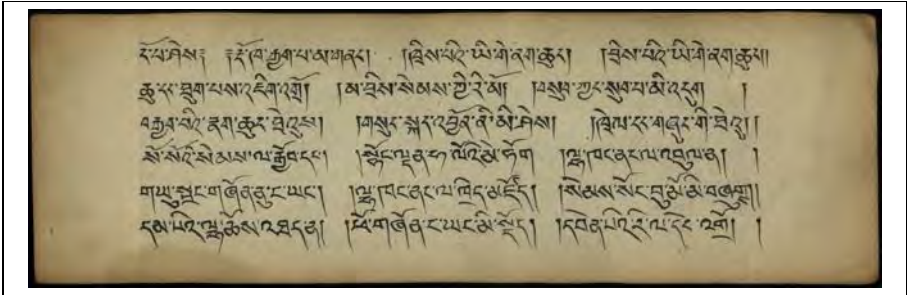 ངོ་པ་ཤེས༔ ༔རྡོ་ཁ་རྒྱག་པ་མ་གནང༌། །བྲིས་པའི་ཡི་གེ་ནག་ཆུང༌། །བྲིས་པའི་ཡི་གེ་ནག་ཆུང༌།
ཆུ་དང་ཐུག་པས་འཇིག་འགྲོ། །མ་བྲིས་སེམས་ཀྱི་རི་མོ། །བསུབ་ཀྱང་སུབ་པ་མི་འདུག །
བརྒྱབ་པའི་ནག་ཆུང་ཐེའུས། །གསུང་སྐད་འབྱོན་ནི་མི་ཤེས། །ཁྲེལ་དང་གཞུང་གི་ཐེའུ། །
སོ་སོའི་སེམས་ལ་རྒྱོབ་དང༌། །སྟོང་ལྡན་ཧ་ལོའི་མེ་ཏོག །ལྷ་ཁང་ནང་ལ་འབུལ་ན། །
གཡུ་སྦྲང་གཞོན་ནུ་ང་ཡང༌། །ལྷ་ཁང་ནང་ལ་ཁྲིད་མཛོད། །སེམས་སོང་བུ་མོ་མི་བཞུགས།
དམ་པའི་ལྷ་ཆོས་འཐད་ན། །ཕོ་གཞོན་ང་ཡང་མི་སྡོད། །དབེན་པའི་རི་ལ་དེང་འགྲོ། །